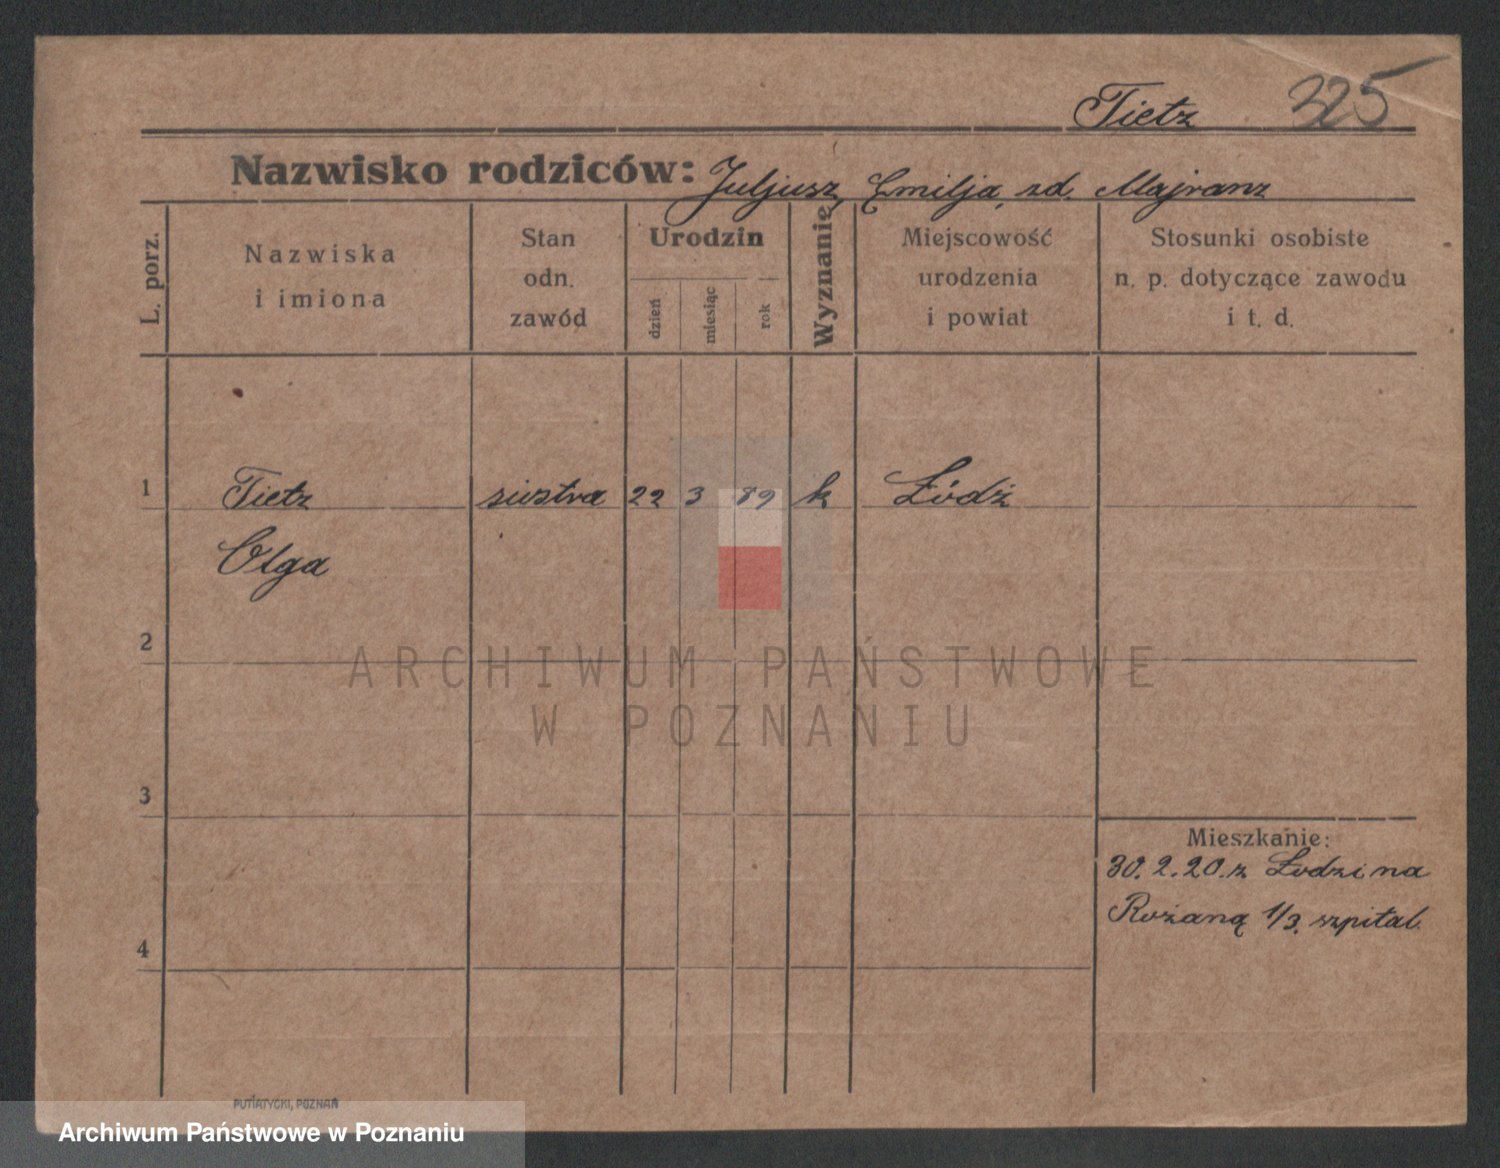 Tietz 325
Nazwisko rodziców: Juljusz, Emilja, zd. Majranz
L. porz.
Nazwiska
i imiona
Stan
odn.
zawód
Urodzin
dzień
miesiąc
rok
Wyznanie
Miejscowość
urodzenia
i powiat
Stosunki osobiste
n. p. dotyczące zawodu
i t. d.
1 Tietz siostra 22 3 89 k Łódź
Olga
2
ARCHIWUM PAŃSTWOWE
W POZNANIU
3
Mieszkanie:
30.2.20. z Łodzi na
Rożaną 1/3. szpital.
4
PUTIATYCKI, POZNAŃ
Archiwum Państwowe w Poznaniu